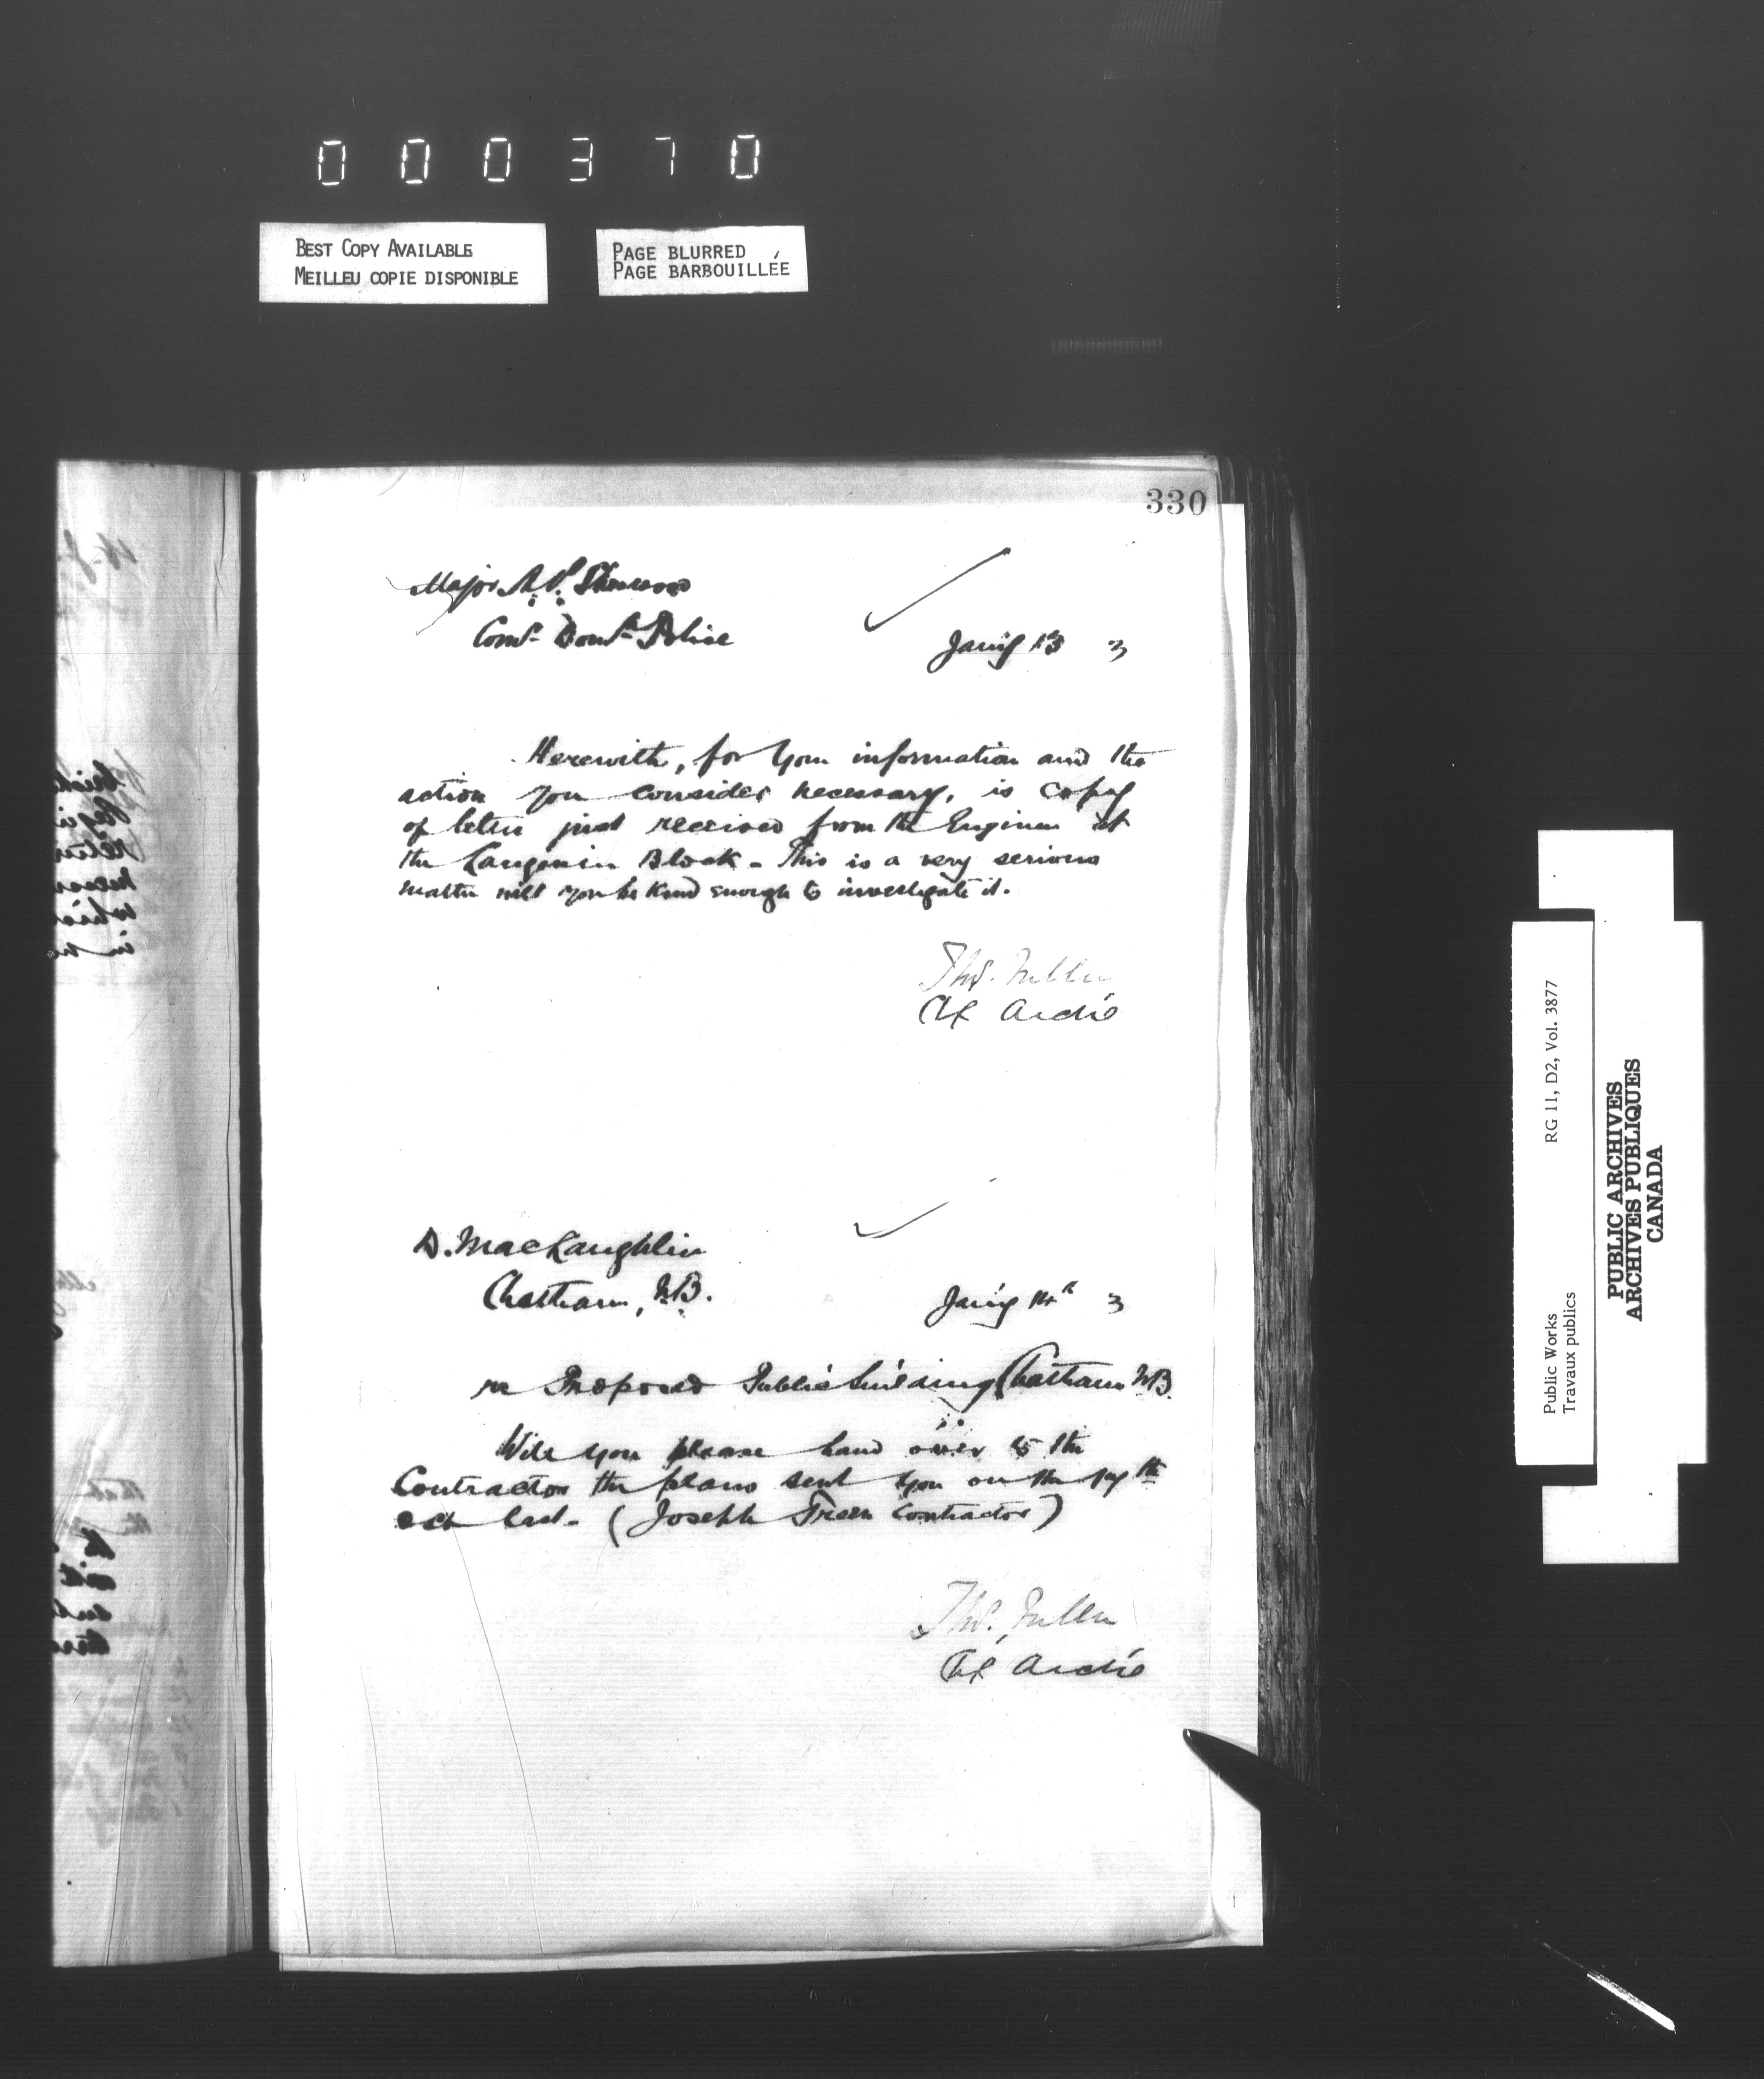 000370
BEST COPY AVAILABLE
MEILLEU COPIE DISPONIBLE
PAGE BLURRED
PAGE BARBOUILLÉE
330
Major A.P. Sherwood
Comr. Domn. Police
Jan'y 13 3
Herewith, for your information and the
action you consider necessary, is copy
of letter just received from the Engineer at
the Langevin Block - This is a very serious
matter will you be kind enough to investigate it.
Thos. Fuller
Ch Archt
D. MacLaughlin
Chatham, N.B.
Jan'y 14th 3
re Proposed Public building Chatham NB.
Will you please hand over to the
Contractor the plans sent you on the
oct last - (Joseph Contractor)
Thos. Fuller
Ch Archt
RG 11, D2, Vol. 3877
Public Works
Travaux publics
PUBLIC ARCHIVES
ARCHIVES PUBLIQUES
CANADA